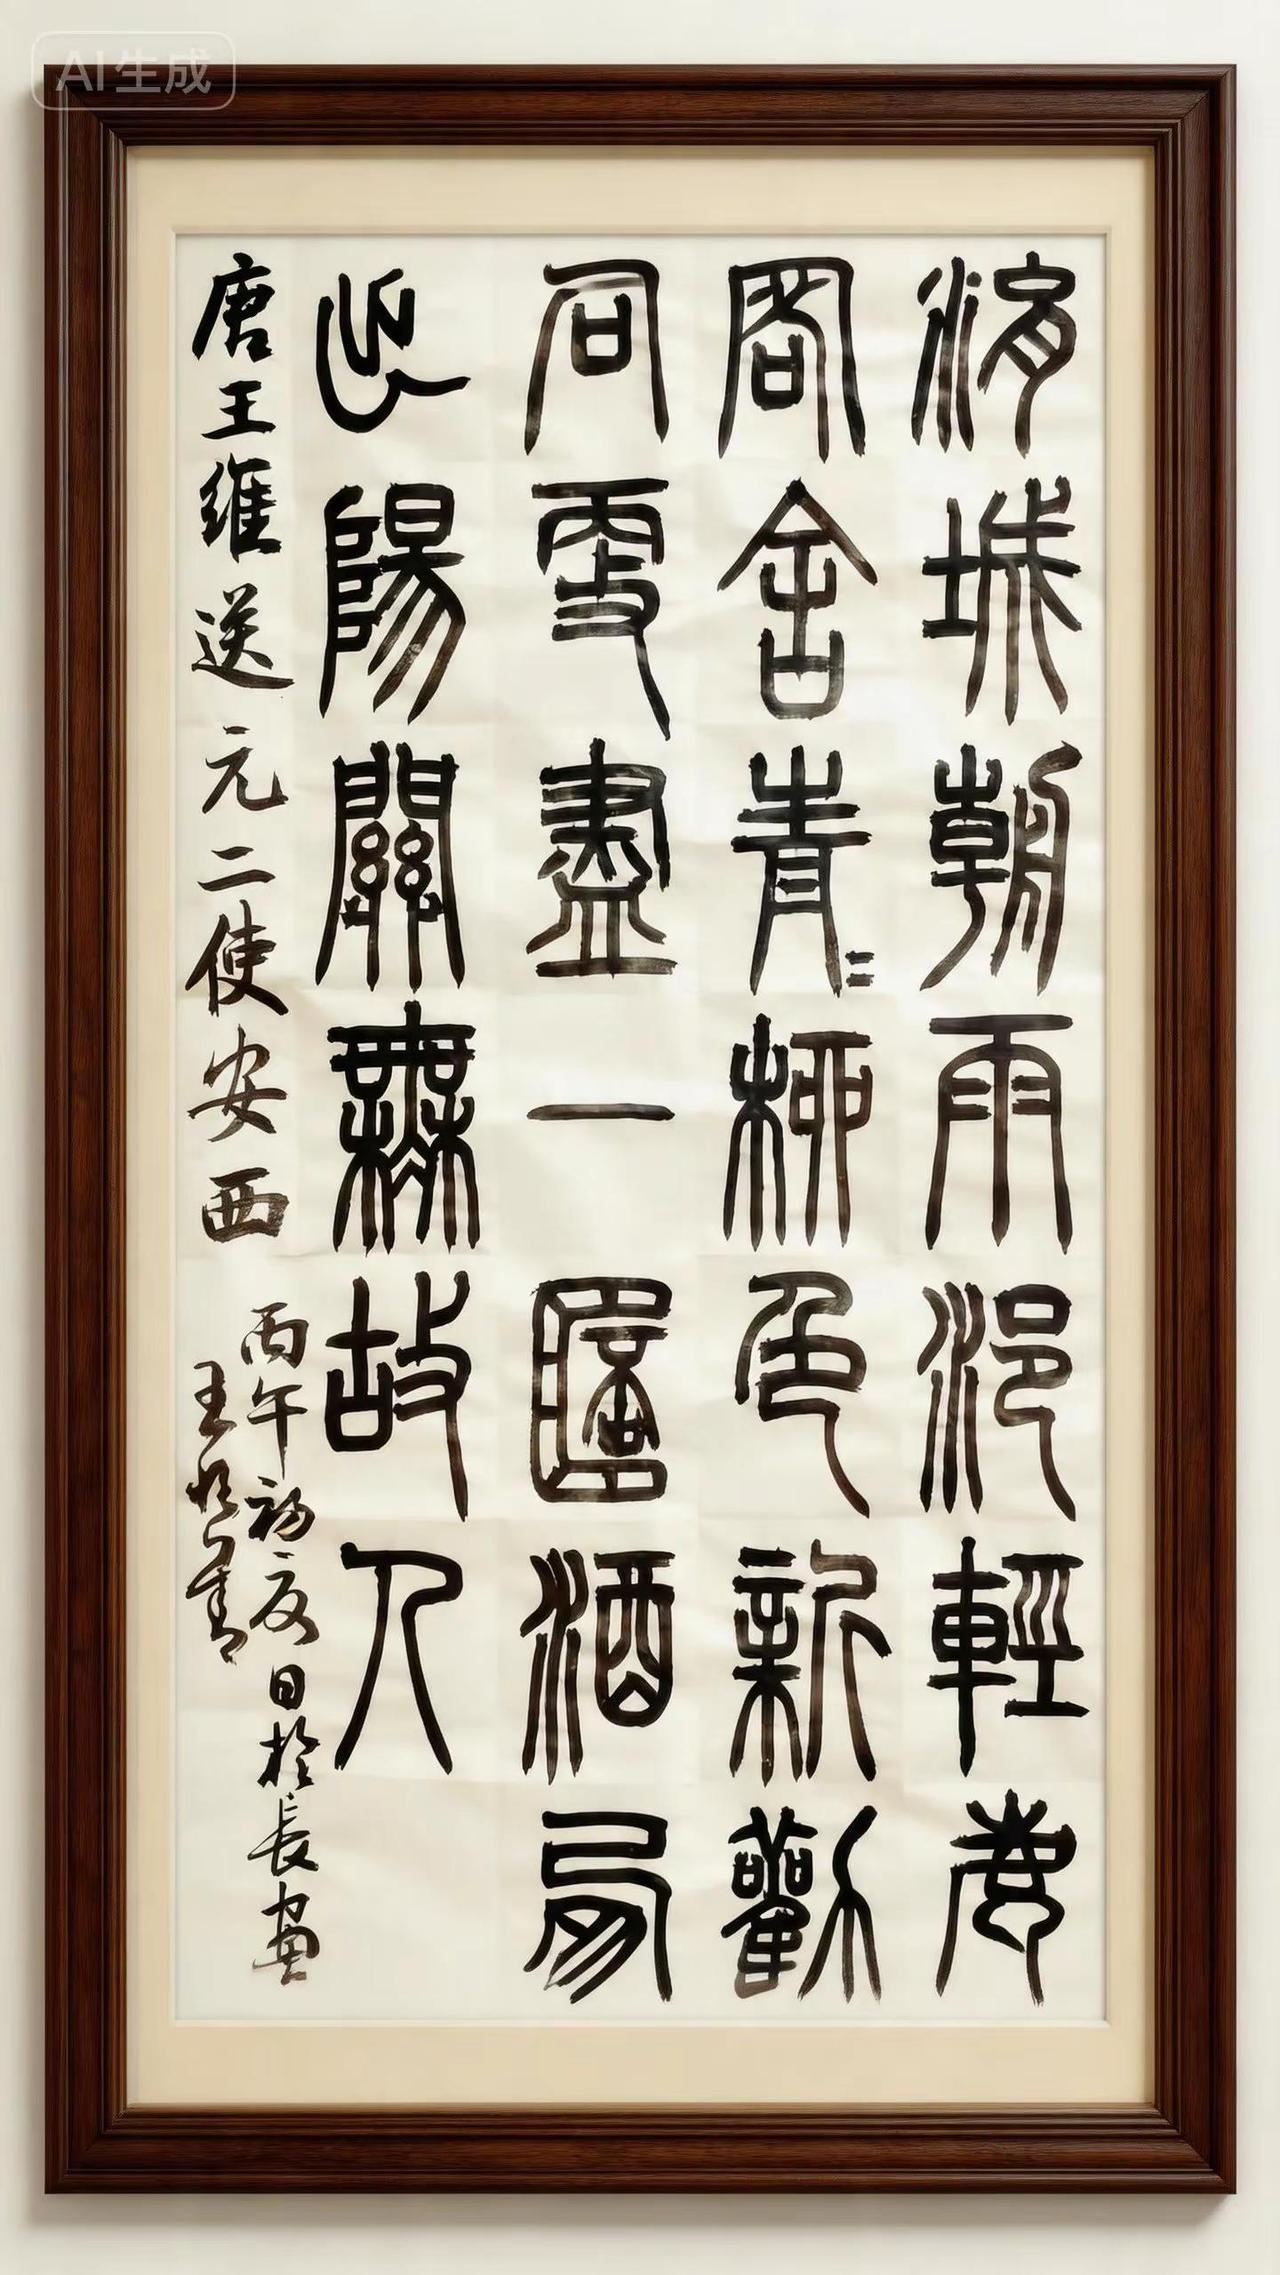 AI生成
渭城朝雨浥輕塵
客舍青〻柳色新勸
君更盡一杯酒西
出陽關無故人
唐王維送元二使安西
丙午初夏日於長
王